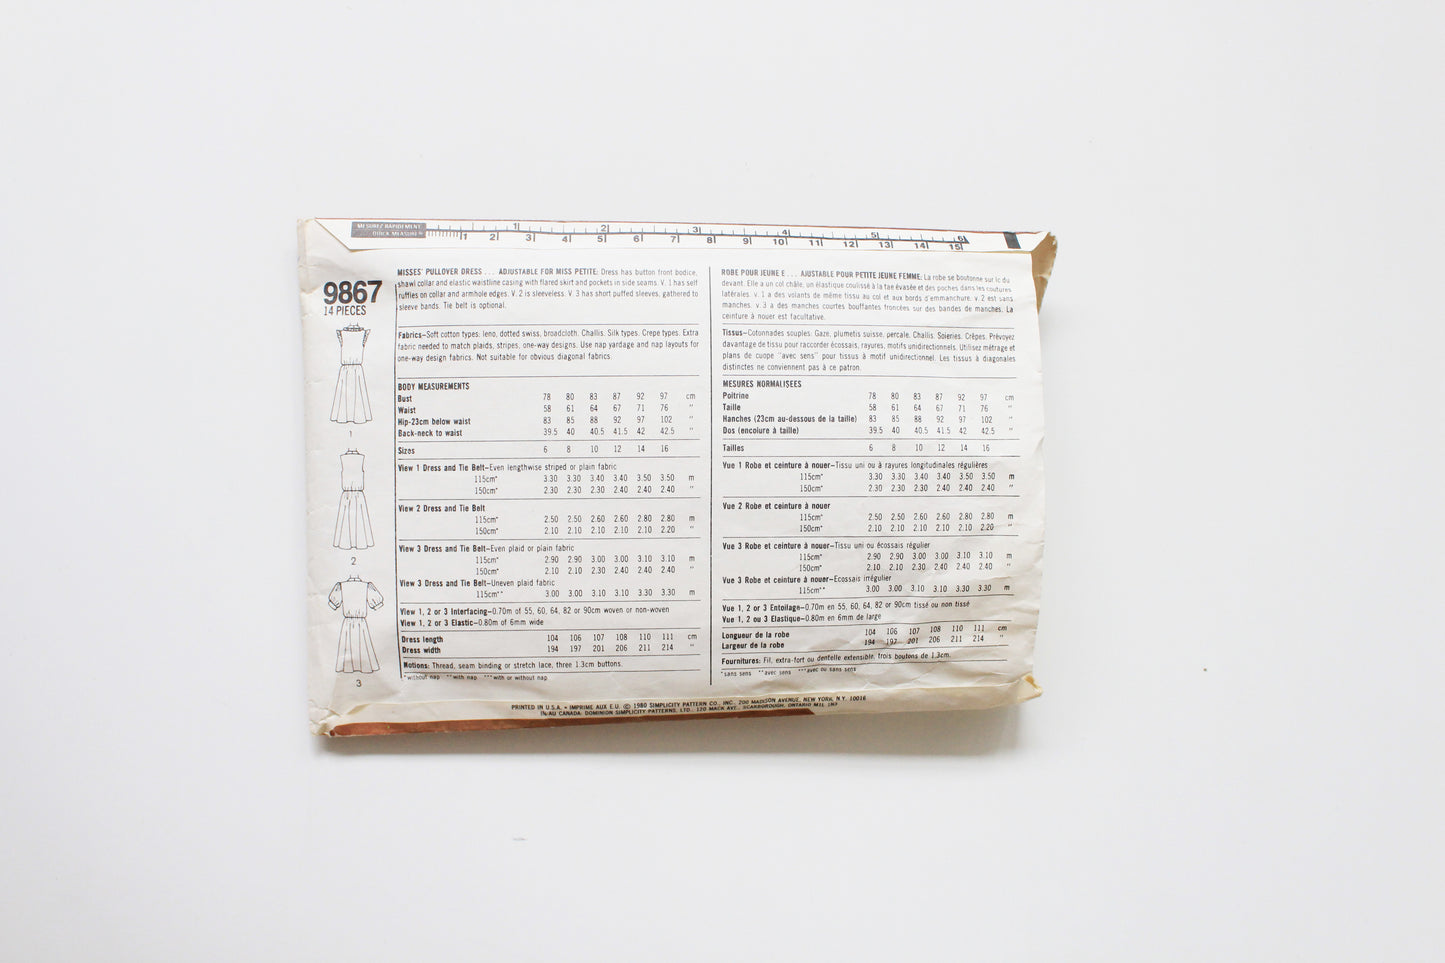 MESUREZ RAPIDEMENT
QUICK MEASURE
1 2 3 4 5 6
1 2 3 4 5 6 7 8 9 10 11 12 13 14 15
9867
14 PIECES
1
2
3
MISSES' PULLOVER DRESS . . . ADJUSTABLE FOR MISS PETITE: Dress has button front bodice,
shawl collar and elastic waistline casing with flared skirt and pockets in side seams. V. 1 has self
ruffles on collar and armhole edges. V. 2 is sleeveless. V. 3 has short puffed sleeves, gathered to
sleeve bands. Tie belt is optional.
Fabrics—Soft cotton types: leno, dotted swiss, broadcloth. Challis. Silk types. Crepe types. Extra
fabric needed to match plaids, stripes, one-way designs. Use nap yardage and nap layouts for
one-way design fabrics. Not suitable for obvious diagonal fabrics.
BODY MEASUREMENTS
Bust 78 80 83 87 92 97 cm
Waist 58 61 64 67 71 76 "
Hip-23cm below waist 83 85 88 92 97 102 "
Back-neck to waist 39.5 40 40.5 41.5 42 42.5 "
Sizes 6 8 10 12 14 16
View 1 Dress and Tie Belt—Even lengthwise striped or plain fabric
115cm* 3.30 3.30 3.40 3.40 3.50 3.50 m
150cm* 2.30 2.30 2.30 2.40 2.40 2.40 "
View 2 Dress and Tie Belt
115cm* 2.50 2.50 2.60 2.60 2.80 2.80 m
150cm* 2.10 2.10 2.10 2.10 2.10 2.20 "
View 3 Dress and Tie Belt—Even plaid or plain fabric
115cm* 2.90 2.90 3.00 3.00 3.10 3.10 m
150cm* 2.10 2.10 2.30 2.40 2.40 2.40 "
View 3 Dress and Tie Belt—Uneven plaid fabric
115cm** 3.00 3.00 3.10 3.10 3.30 3.30 m
View 1, 2 or 3 Interfacing—0.70m of 55, 60, 64, 82 or 90cm woven or non-woven
View 1, 2 or 3 Elastic—0.80m of 6mm wide
Dress length 104 106 107 108 110 111 cm
Dress width 194 197 201 206 211 214 "
Notions: Thread, seam binding or stretch lace, three 1.3cm buttons.
*without nap **with nap ***with or without nap
ROBE POUR JEUNE E . . . AJUSTABLE POUR PETITE JEUNE FEMME: La robe se boutonne sur lc du
devant. Elle a un col châle, un élastique coulissé à la tae évasée et des poches dans les coutures
latérales. v. 1 a des volants de même tissu au col et aux bords d'emmanchure. v. 2 est sans
manches. v. 3 a des manches courtes bouffantes froncées sur des bandes de manches. La
ceinture à nouer est facultative.
Tissus—Cotonnades souples: Gaze, plumetis suisse, percale. Challis. Soieries. Crêpes. Prévoyez
davantage de tissu pour raccorder écossais, rayures, motifs unidirectionnels. Utilisez métrage et
plans de cuope "avec sens" pour tissus à motif unidirectionnel. Les tissus à diagonales
distinctes ne conviennent pas à ce patron.
MESURES NORMALISEES
Poitrine 78 80 83 87 92 97 cm
Taille 58 61 64 67 71 76 "
Hanches (23cm au-dessous de la taille) 83 85 88 92 97 102 "
Dos (encolure à taille) 39.5 40 40.5 41.5 42 42.5 "
Tailles 6 8 10 12 14 16
Vue 1 Robe et ceinture à nouer—Tissu uni ou à rayures longitudinales régulières
115cm* 3.30 3.30 3.40 3.40 3.50 3.50 m
150cm* 2.30 2.30 2.30 2.40 2.40 2.40 "
Vue 2 Robe et ceinture à nouer
115cm* 2.50 2.50 2.60 2.60 2.80 2.80 m
150cm* 2.10 2.10 2.10 2.10 2.10 2.20 "
Vue 3 Robe et ceinture à nouer—Tissu uni ou écossais régulier
115cm* 2.90 2.90 3.00 3.00 3.10 3.10 m
150cm* 2.10 2.10 2.30 2.40 2.40 2.40 "
Vue 3 Robe et ceinture à nouer—Ecossais irrégulier
115cm** 3.00 3.00 3.10 3.10 3.30 3.30 m
Vue 1, 2 or 3 Entoilage—0.70m en 55, 60, 64, 82 or 90cm tissé ou non tissé
Vue 1, 2 ou 3 Elastique—0.80m en 6mm de large
Longueur de la robe 104 106 107 108 110 111 cm
Largeur de la robe 194 197 201 206 211 214 "
Fournitures: Fil, extra-fort ou dentelle extensible, trois boutons de 1.3cm.
*sans sens **avec sens ***avec ou sans sens
PRINTED IN U.S.A. • IMPRIME AUX E.U. © 1980 SIMPLICITY PATTERN CO., INC. 200 MADISON AVENUE, NEW YORK, N.Y. 10016
IN/AU CANADA: DOMINION SIMPLICITY PATTERNS, LTD., 120 MACK AVE., SCARBOROUGH, ONTARIO M1L 1N3